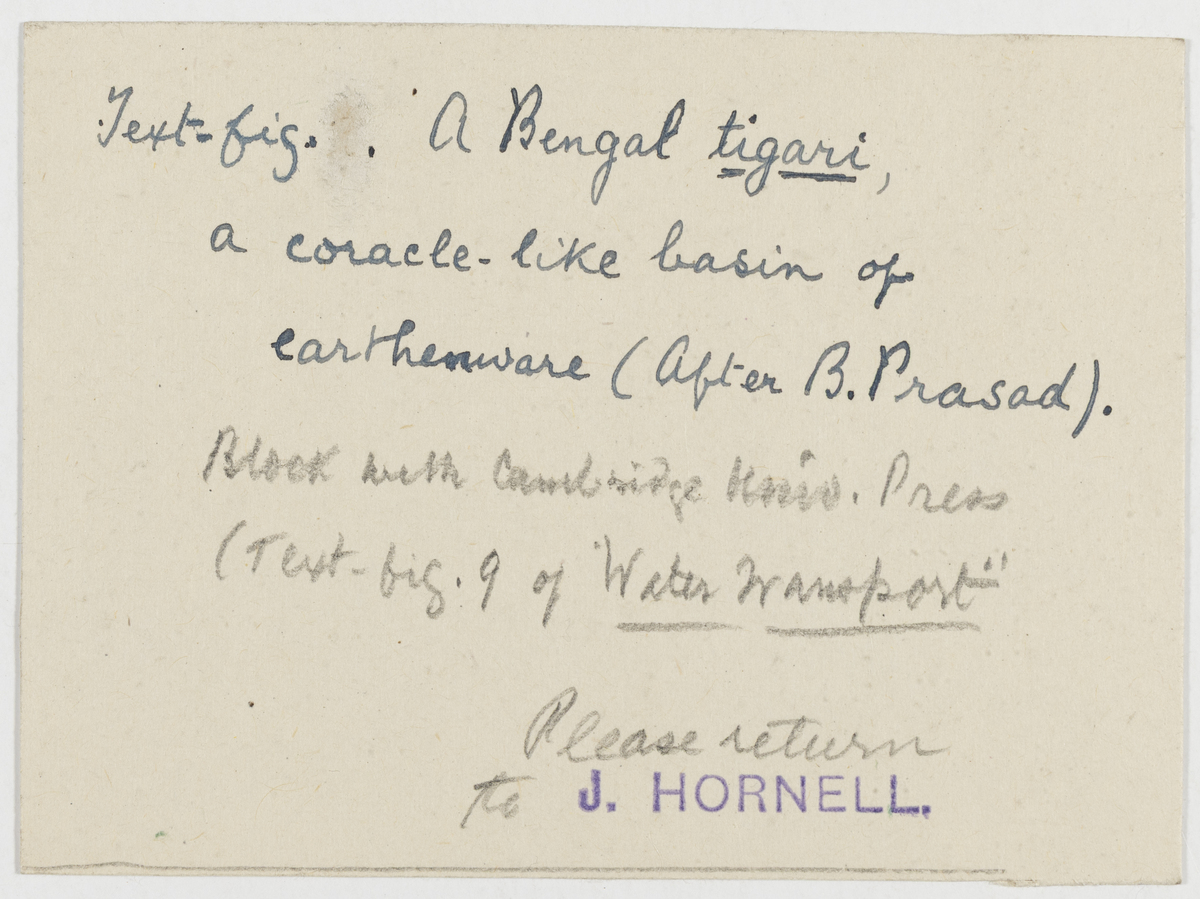 Text-fig. . A Bengal tigari,
a coracle-like basin of
earthenware (After B. Prasad).
Block with Cambridge Univ. Press
(Text-fig. 9 of "Water Transport"
Please return
to J. HORNELL.